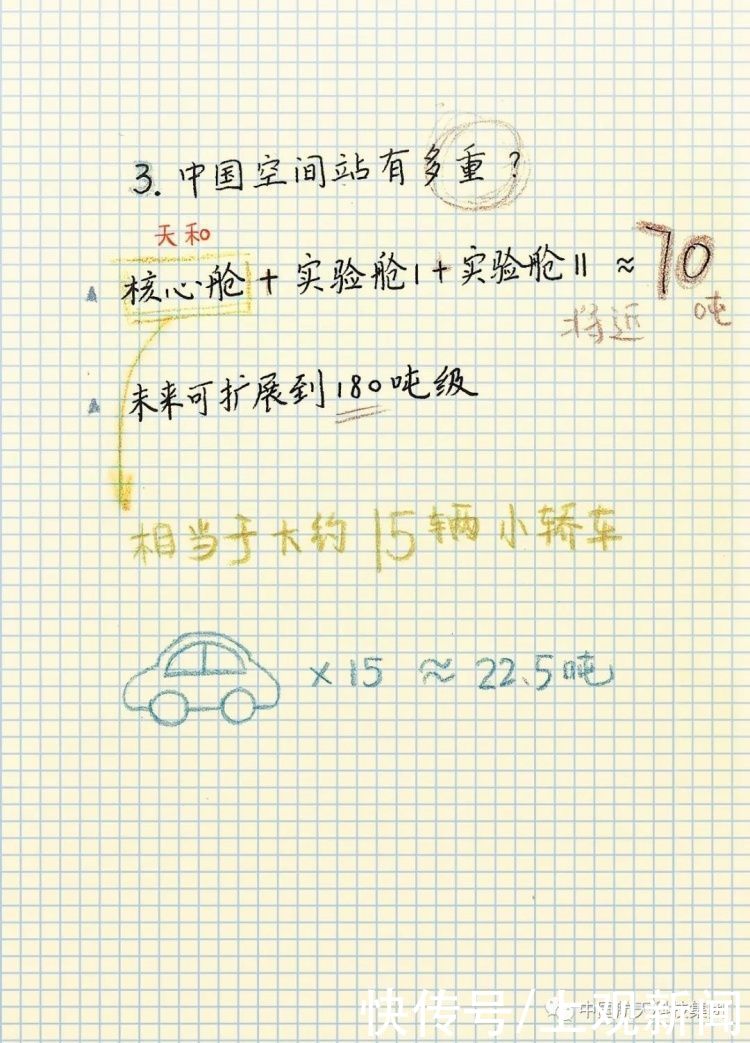 3. 中国空间站有多重?
天和
核心舱 + 实验舱Ⅰ + 实验舱Ⅱ ≈ 70
将近 吨
未来可扩展到180吨级
相当于大约15辆小轿车
×15 ≈ 22.5吨
中国航天科技集团
快传号/上观新闻